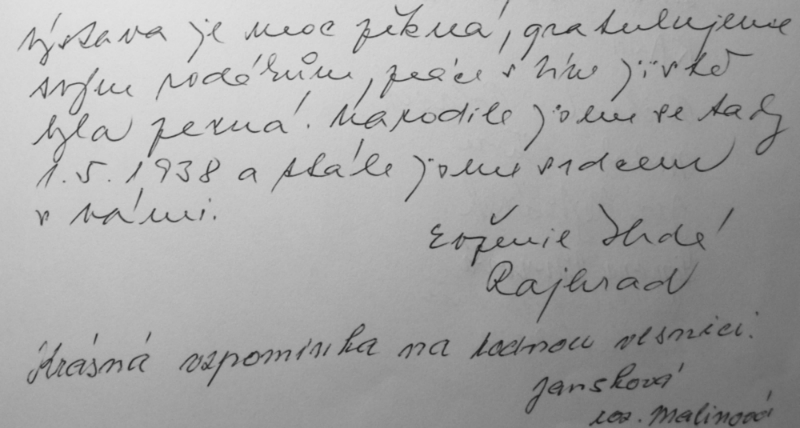 výstava je moc pěkná, gratulujeme
svým rodákům, práce s tím jistě
byla perná. Narodila jsme se tady
1.5.1938 a stále jsme srdcem
s vámi.
Evženie
Rajhrad
Krásná vzpomínka na rodnou vesnici.
Janská
roz. Malinová